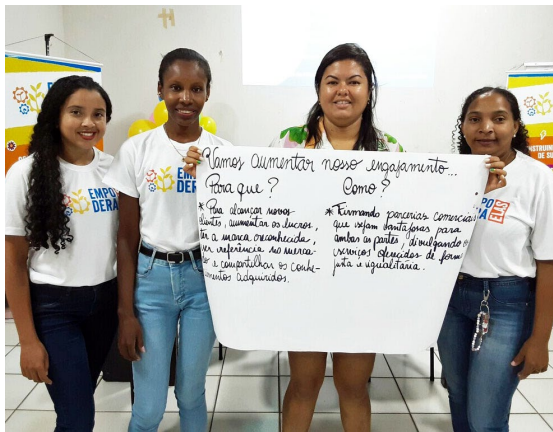 Vamos aumentar nosso engajamento...
Para que?
* Para alcançar novos
clientes, aumentar os lucros,
ter a marca reconhecida,
ser referência no merca-
do e compartilhar os conhe-
cimentos adquiridos.
Como?
* Firmando parcerias comerciais
que sejam vantajosas para
ambas as partes, divulgando os
serviços oferecidos de forma
justa e igualitária.
EMPO
DERA
EMPO
DERA
EMPO
DERA
ELAS
EMPO